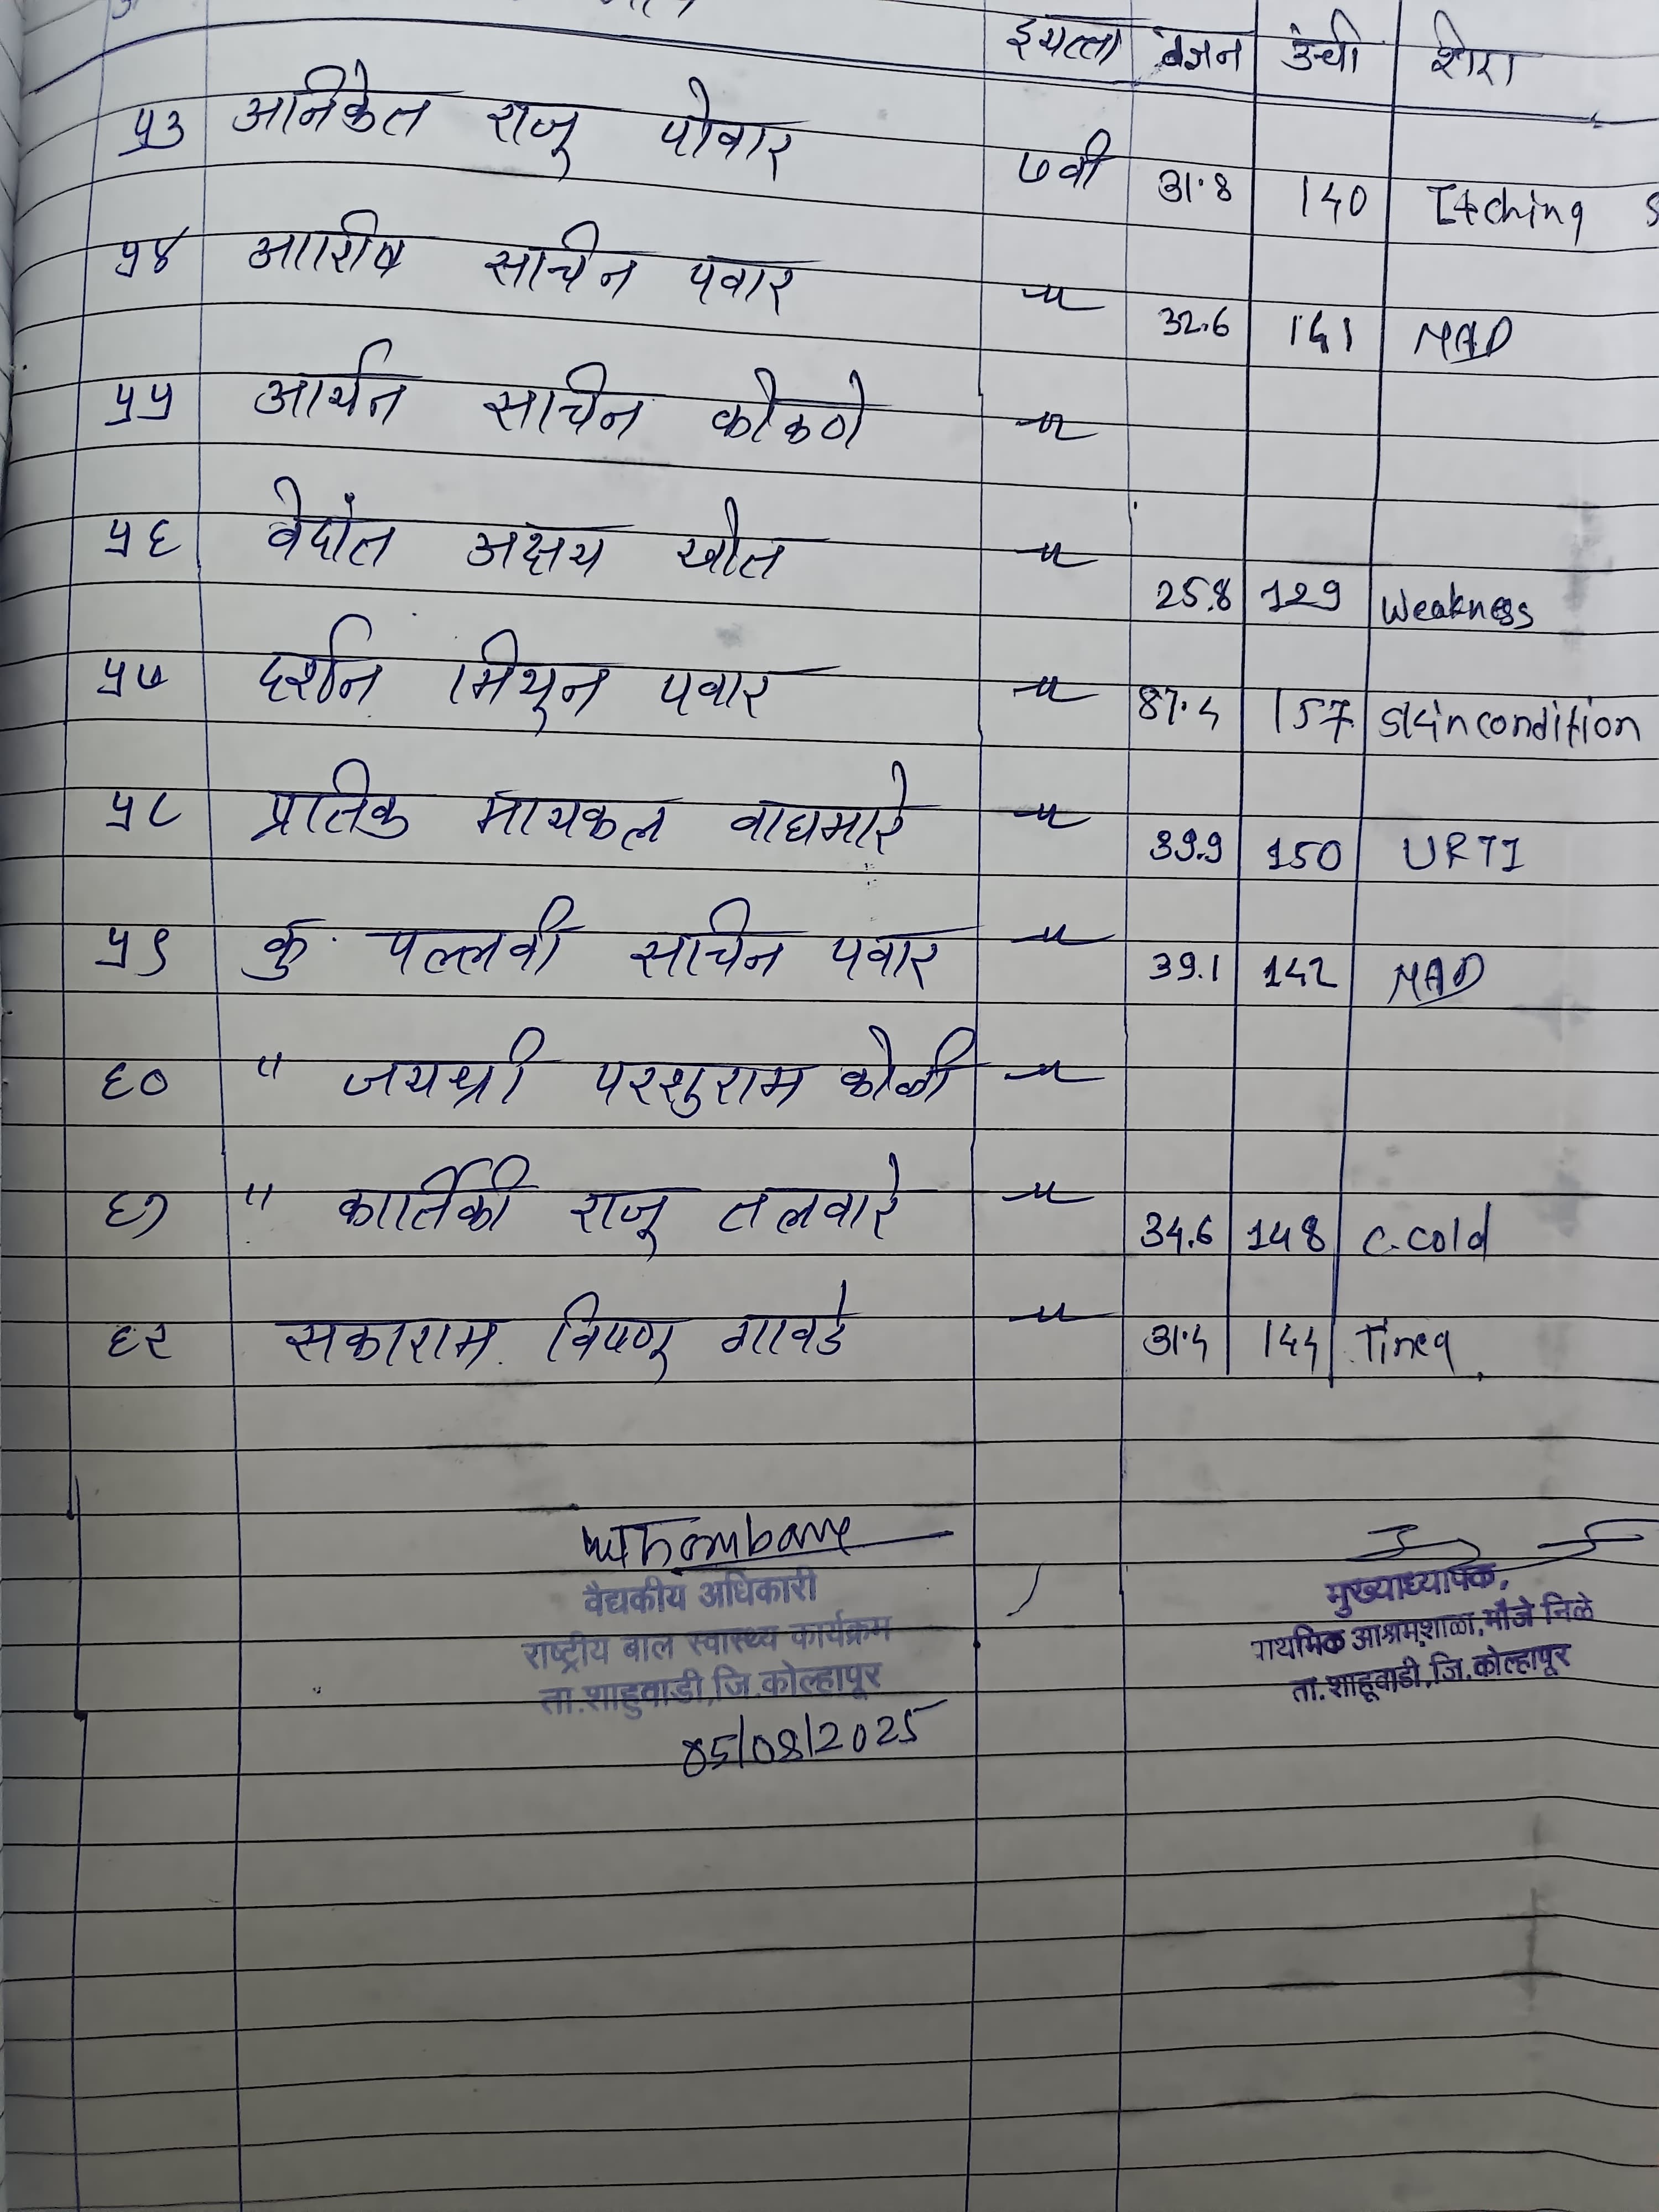 इयत्ता वजन उंची शेरा
५३ अनिकेत राजू पोवार ७वी 31.8 140 Itching
५४ आशिष सचिन पवार -"- 32.6 141 NAD
५५ आर्यन सचिन कोकणे -"-
५६ वेदांत अक्षय खोत -"- 25.8 129 Weakness
५७ दर्शन मिथून पवार -"- 157 skin condition
५८ प्रतिक मायकल वाघमारे -"- 39.9 150 URTI
५९ कु. पल्लवी सचिन पवार -"- 39.1 142 NAD
६० " जयश्री परशुराम कोळी -"-
६१ " कार्तिकी राजू तलवारे -"- 34.6 148 C.cold
६२ सकाराम विष्णू गावडे -"- 31.4 144 Tinea
वैद्यकीय अधिकारी
राष्ट्रीय बाल स्वास्थ्य कार्यक्रम
ता.शाहुवाडी,जि.कोल्हापूर
05/08/2025
मुख्याध्यापक,
प्राथमिक आश्रमशाळा,मौजे निळे
ता.शाहूवाडी,जि.कोल्हापूर